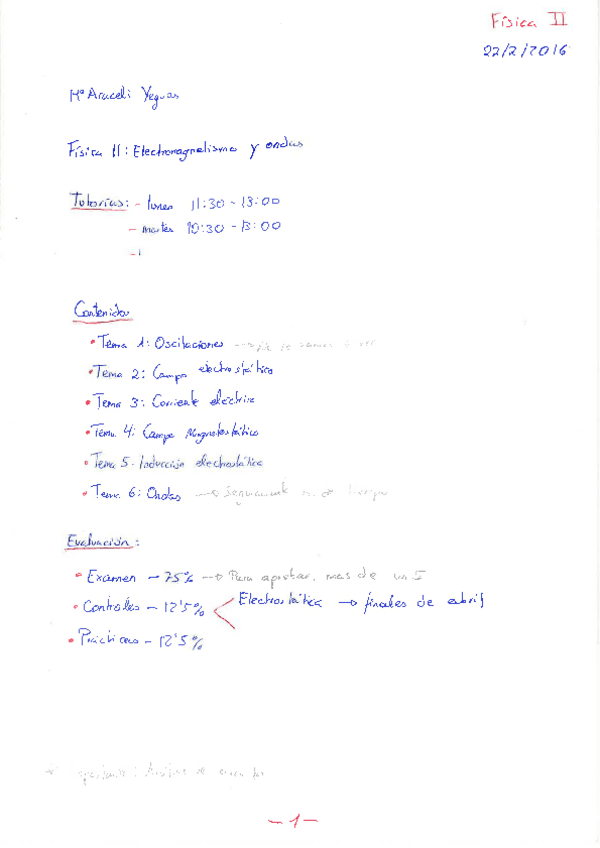 Física II
22/2/2016
Mª Araceli Yeguas
Física II: Electromagnetismo y ondas
Tutorías: - lunes 11:30 - 13:00
- martes 10:30 - 13:00
-
Contenidos
• Tema 1: Oscilaciones
• Tema 2: Campo electrostático
• Tema 3: Corriente eléctrica
• Tema 4: Campo Magnetostático
• Tema 5: Inducción electrostática
• Tema 6: Ondas → tiempo
Evaluación:
• Examen - 75% → Para aprobar, mas de un 5
• Controles - 12'5% Electrostática → finales de abril
• Prácticas - 12'5%
- 1 -